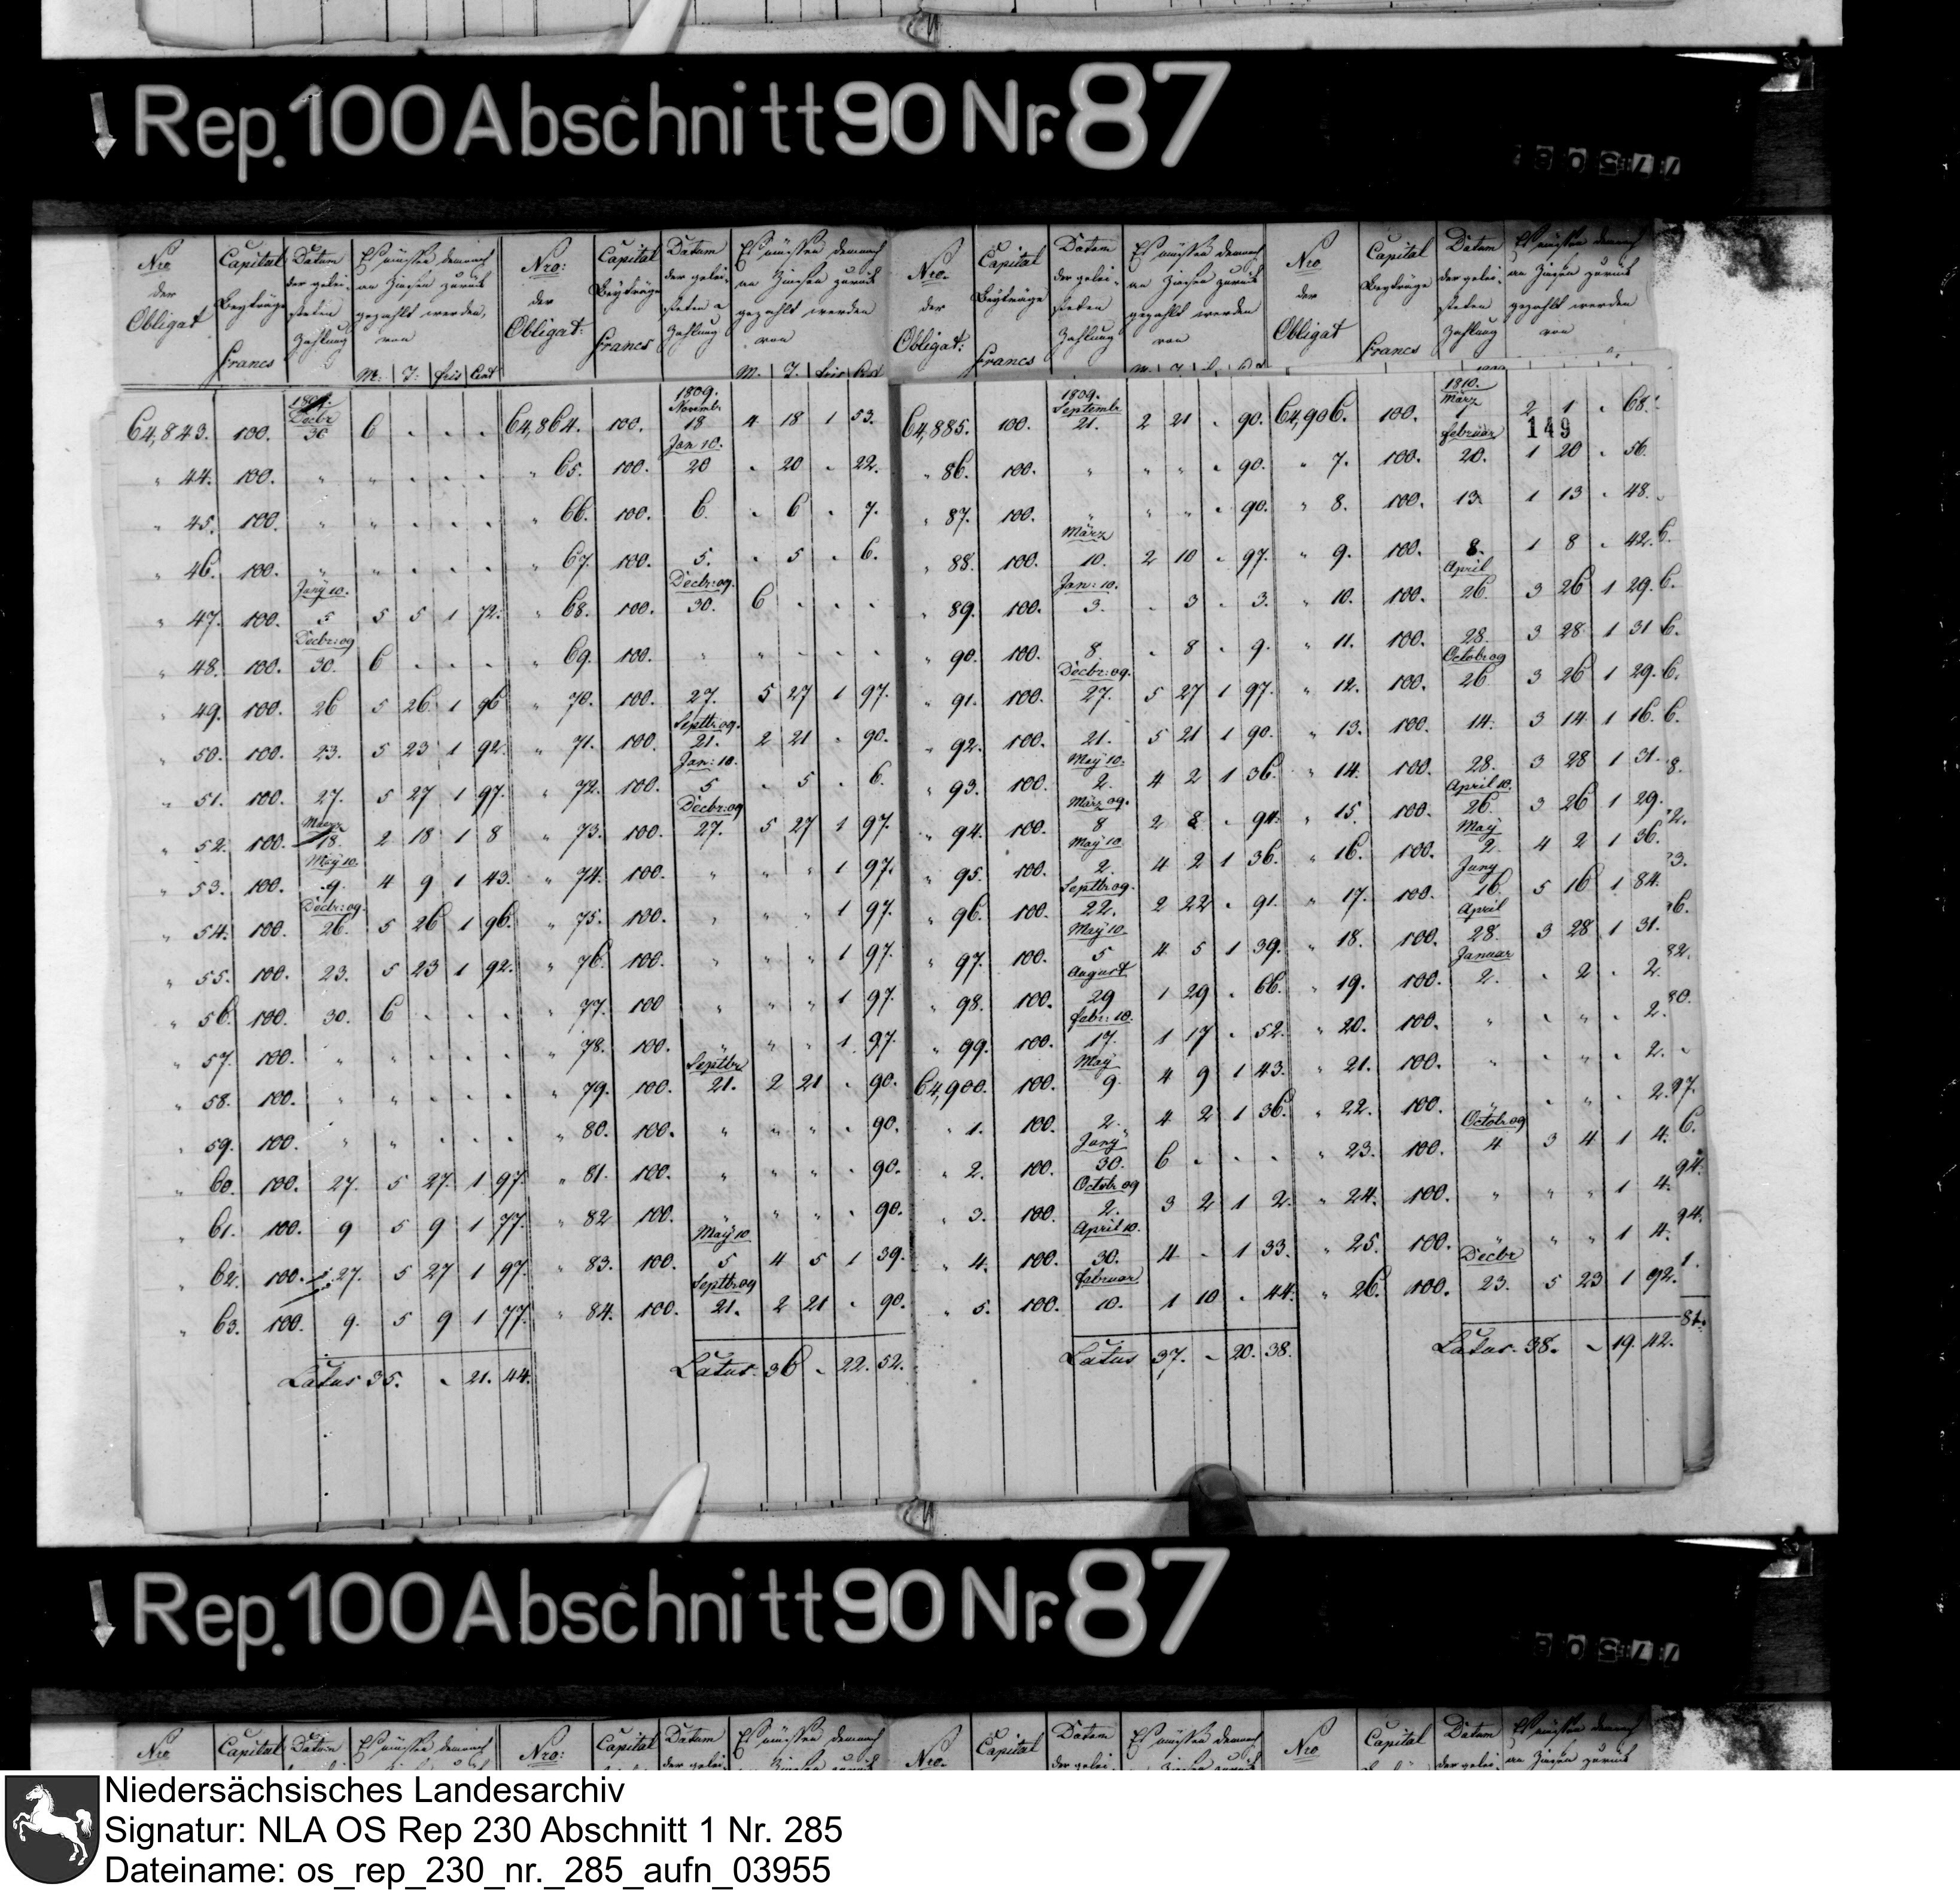 Rep. 100 Abschnitt 90 Nr. 87
Nro der Obligat | Capital Beyträge Francs | Datum der gelei- steten Zahlung | Es müssen demnach an Zinsen zurück gezahlt werden, von M: T: frcs Cent
64,843. 100. 1809. Decbr 30 6 . . .
" 44. 100. " " . . .
" 45. 100. " " . . .
" 46. 100. " " . . .
" 47. 100. Juny 10. 5 5 5 1 72.
" 48. 100. Decbr: 09 30. 6 . . .
" 49. 100. 26 5 26 1 96
" 50. 100. 23. 5 23 1 92.
" 51. 100. 27. 5 27 1 97.
" 52. 100. Maerz 18. 2 18 1 8
" 53. 100. Maÿ 10. 9. 4 9 1 43.
" 54. 100. Decbr: 09. 26. 5 26 1 96.
" 55. 100. 23. 5 23 1 92.
" 56. 100. 30. 6 . . .
" 57. 100. " " . . .
" 58. 100. " " . . .
" 59. 100. " " . . .
" 60. 100. 27. 5 27. 1 97.
" 61. 100. 9 5 9 1 77.
" 62. 100. 27. 5 27 1 97.
" 63. 100. 9. 5 9 1 77.
Latus 35. " 21. 44.
Nro: der Obligat: | Capital Beyträge Francs | Datum der gelei- steten Zahlung | Es müssen demnach an Zinsen zurück gezahlt werden von M. T. frcs Cent
64,864. 100. 1809. Novembr. 18 4 18 1 53.
" 65. 100. Jan 10. 20 . 20 . 22.
" 66. 100. 6. . 6 . 7.
" 67. 100. 5. . 5 . 6.
" 68. 100. Decbr: 09. 30. 6 . . .
" 69. 100. " " . . .
" 70. 100. 27. 5 27 1 97.
" 71. 100. Septbr. 09. 21. 2 21 . 90.
" 72. 100. Jan: 10. 5 . 5 . 6.
" 73. 100. Decbr: 09 27. 5 27 1 97.
" 74. 100. " " " 1 97.
" 75. 100. " " " 1 97.
" 76. 100. " " " 1 97.
" 77. 100 " " " 1 97.
" 78. 100. " " " 1 97.
" 79. 100. Septbr 21. 2 21 . 90.
" 80. 100. " " " . 90.
" 81. 100. " " " . 90.
" 82 100. " " " . 90.
" 83. 100. Maÿ 10 5 4 5 1 39.
" 84. 100. Septbr. 09 21. 2 21 . 90.
Latus. 36 " 22. 52.
Nro. der Obligat: | Capital Beyträge Francs | Datum der gelei- steten Zahlung | Es müssen demnach an Zinsen zurück gezahlt werden von
64,885. 100. 1809. Septembr 21. 2 21 . 90.
" 86. 100. " " " . 90.
" 87. 100. " " " . 90.
" 88. 100. März 10. 2 10 . 97.
" 89. 100. Jan: 10. 3. . 3 . 3.
" 90. 100. 8 . 8 . 9.
" 91. 100. Decbr: 09. 27. 5 27 1 97.
" 92. 100. 21. 5 21 1 90.
" 93. 100. Maÿ 10. 2. 4 2 1 36.
" 94. 100. März 09. 8 2 8 . 94.
" 95. 100. Maÿ 10 2. 4 2 1 36.
" 96. 100. Septbr 09. 22. 2 22 . 91.
" 97. 100. Maÿ 10. 5 4 5 1 39.
" 98. 100. August 29 1 29 . 66.
" 99. 100. Febr: 10. 17. 1 17 . 52.
64,900. 100. May 9. 4 9 1 43.
" 1. 100. 2. 4 2 1 36.
" 2. 100. Juny 30. 6 . . .
" 3. 100. Octob. 09 2. 3 2 1 2.
" 4. 100. April 10. 30. 4 - 1 33.
" 5. 100. Februar 10. 1 10 . 44.
Latus 37. " 20. 38.
Nro der Obligat | Capital Beyträge Francs | Datum der gelei- steten Zahlung | Es müssen demnach an Zinsen zurück gezahlt werden von
149
64,906. 100. 1810. März 1 2 1 . 68.
" 7. 100. Februar 20. 1 20 . 56.
" 8. 100. 13. 1 13 . 48.
" 9. 100. 8. 1 8 . 42.
" 10. 100. April 26. 3 26 1 29.
" 11. 100. 28. 3 28 1 31
" 12. 100. Octob. 09 26 3 26 1 29.
" 13. 100. 14. 3 14 1 16.
" 14. 100. 28. 3 28 1 31.
" 15. 100. April 10. 26. 3 26 1 29.
" 16. 100. Maÿ 2. 4 2 1 36.
" 17. 100. Juny 16. 5 16 1 84.
" 18. 100. April 28. 3 28 1 31.
" 19. 100. Januar 2. . 2 . 2.
" 20. 100. " . " . 2.
" 21. 100. " . " . 2.
" 22. 100. " . " . 2.
" 23. 100. Octob. 09 4 3 4 1 4.
" 24. 100. " " " 1 4.
" 25. 100. " " " 1 4.
" 26. 100. Decbr 23. 5 23 1 92.
Latus. 38. " 19. 42.
Rep. 100 Abschnitt 90 Nr. 87
Nro Capital Datum Es müssen demnach Nro: Capital Datum Es müssen demnach Nro. Capital Datum Es müssen demnach Nro Capital Datum Es müssen demnach
Niedersächsisches Landesarchiv
Signatur: NLA OS Rep 230 Abschnitt 1 Nr. 285
Dateiname: os_rep_230_nr._285_aufn_03955